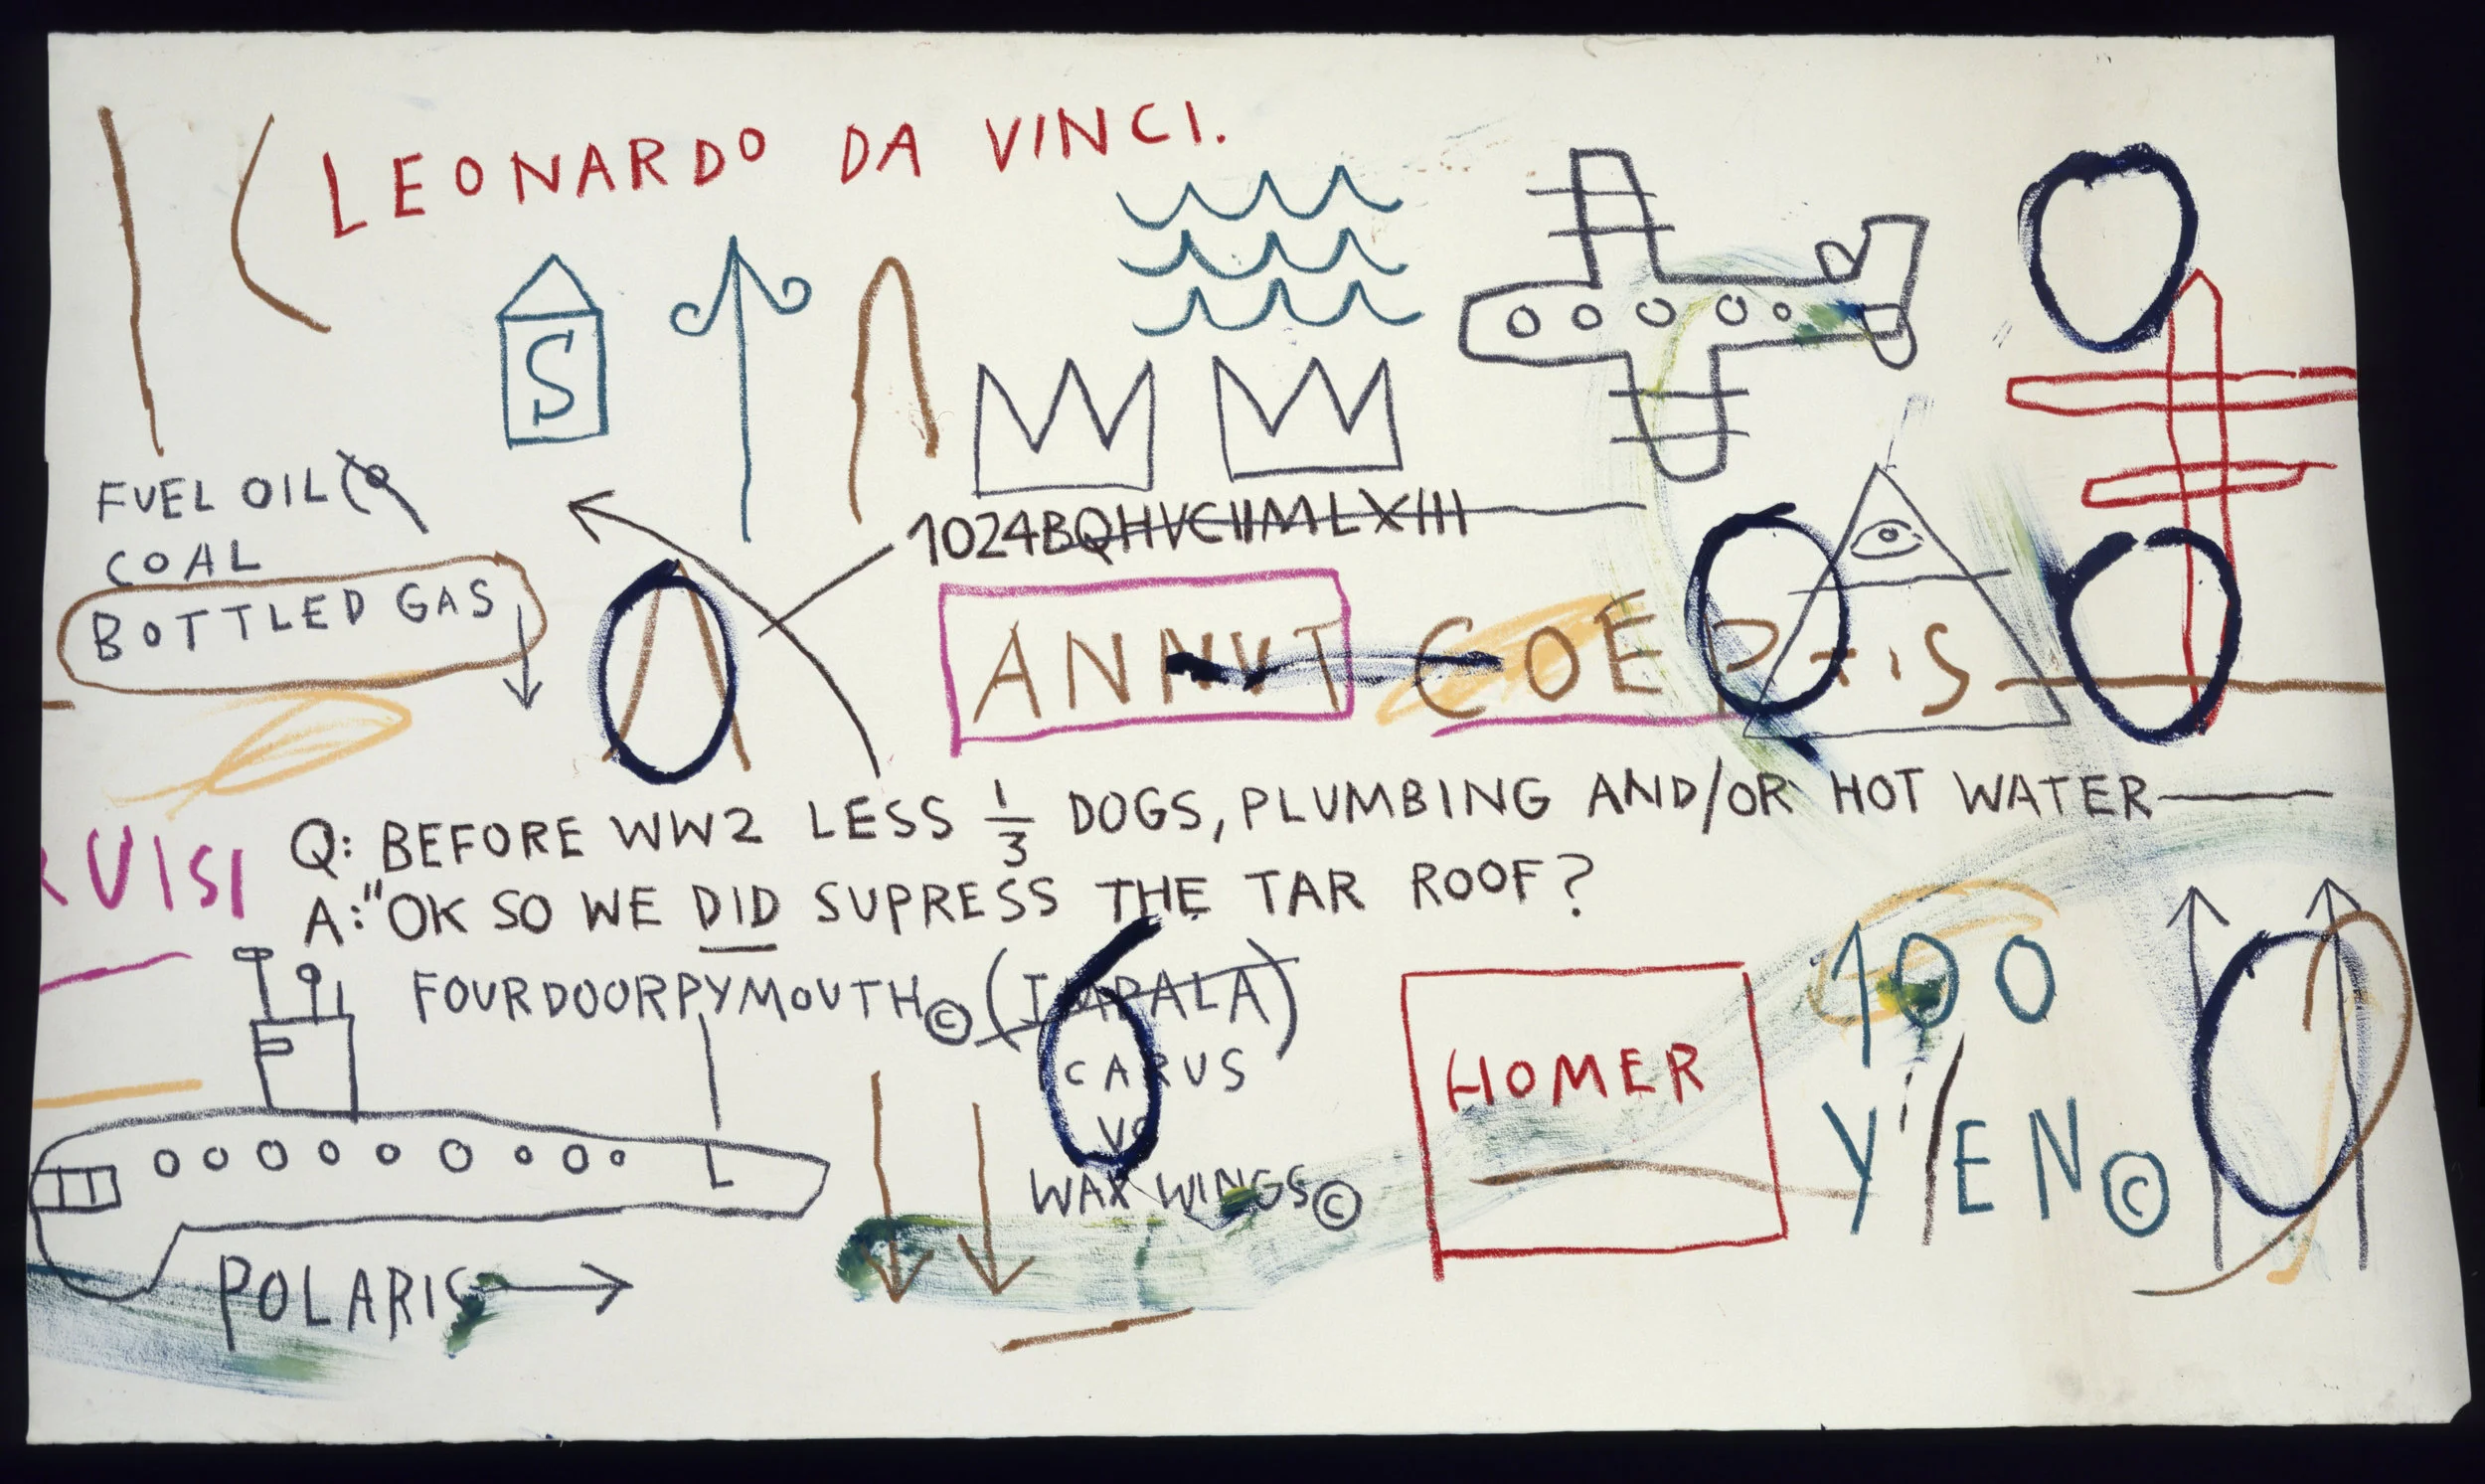 LEONARDO DA VINCI.
S
FUEL OIL
COAL
BOTTLED GAS
1024BQHVCIIMLXIII
ANNVT COEPTIS
Q: BEFORE WW2 LESS 1/3 DOGS, PLUMBING AND/OR HOT WATER
A: "OK SO WE DID SUPRESS THE TAR ROOF?
RUISI
FOURDOORPYMOUTH© (IMPALA)
ICARUS
VS
WAX WINGS©
L
POLARIS
HOMER
100
YEN©